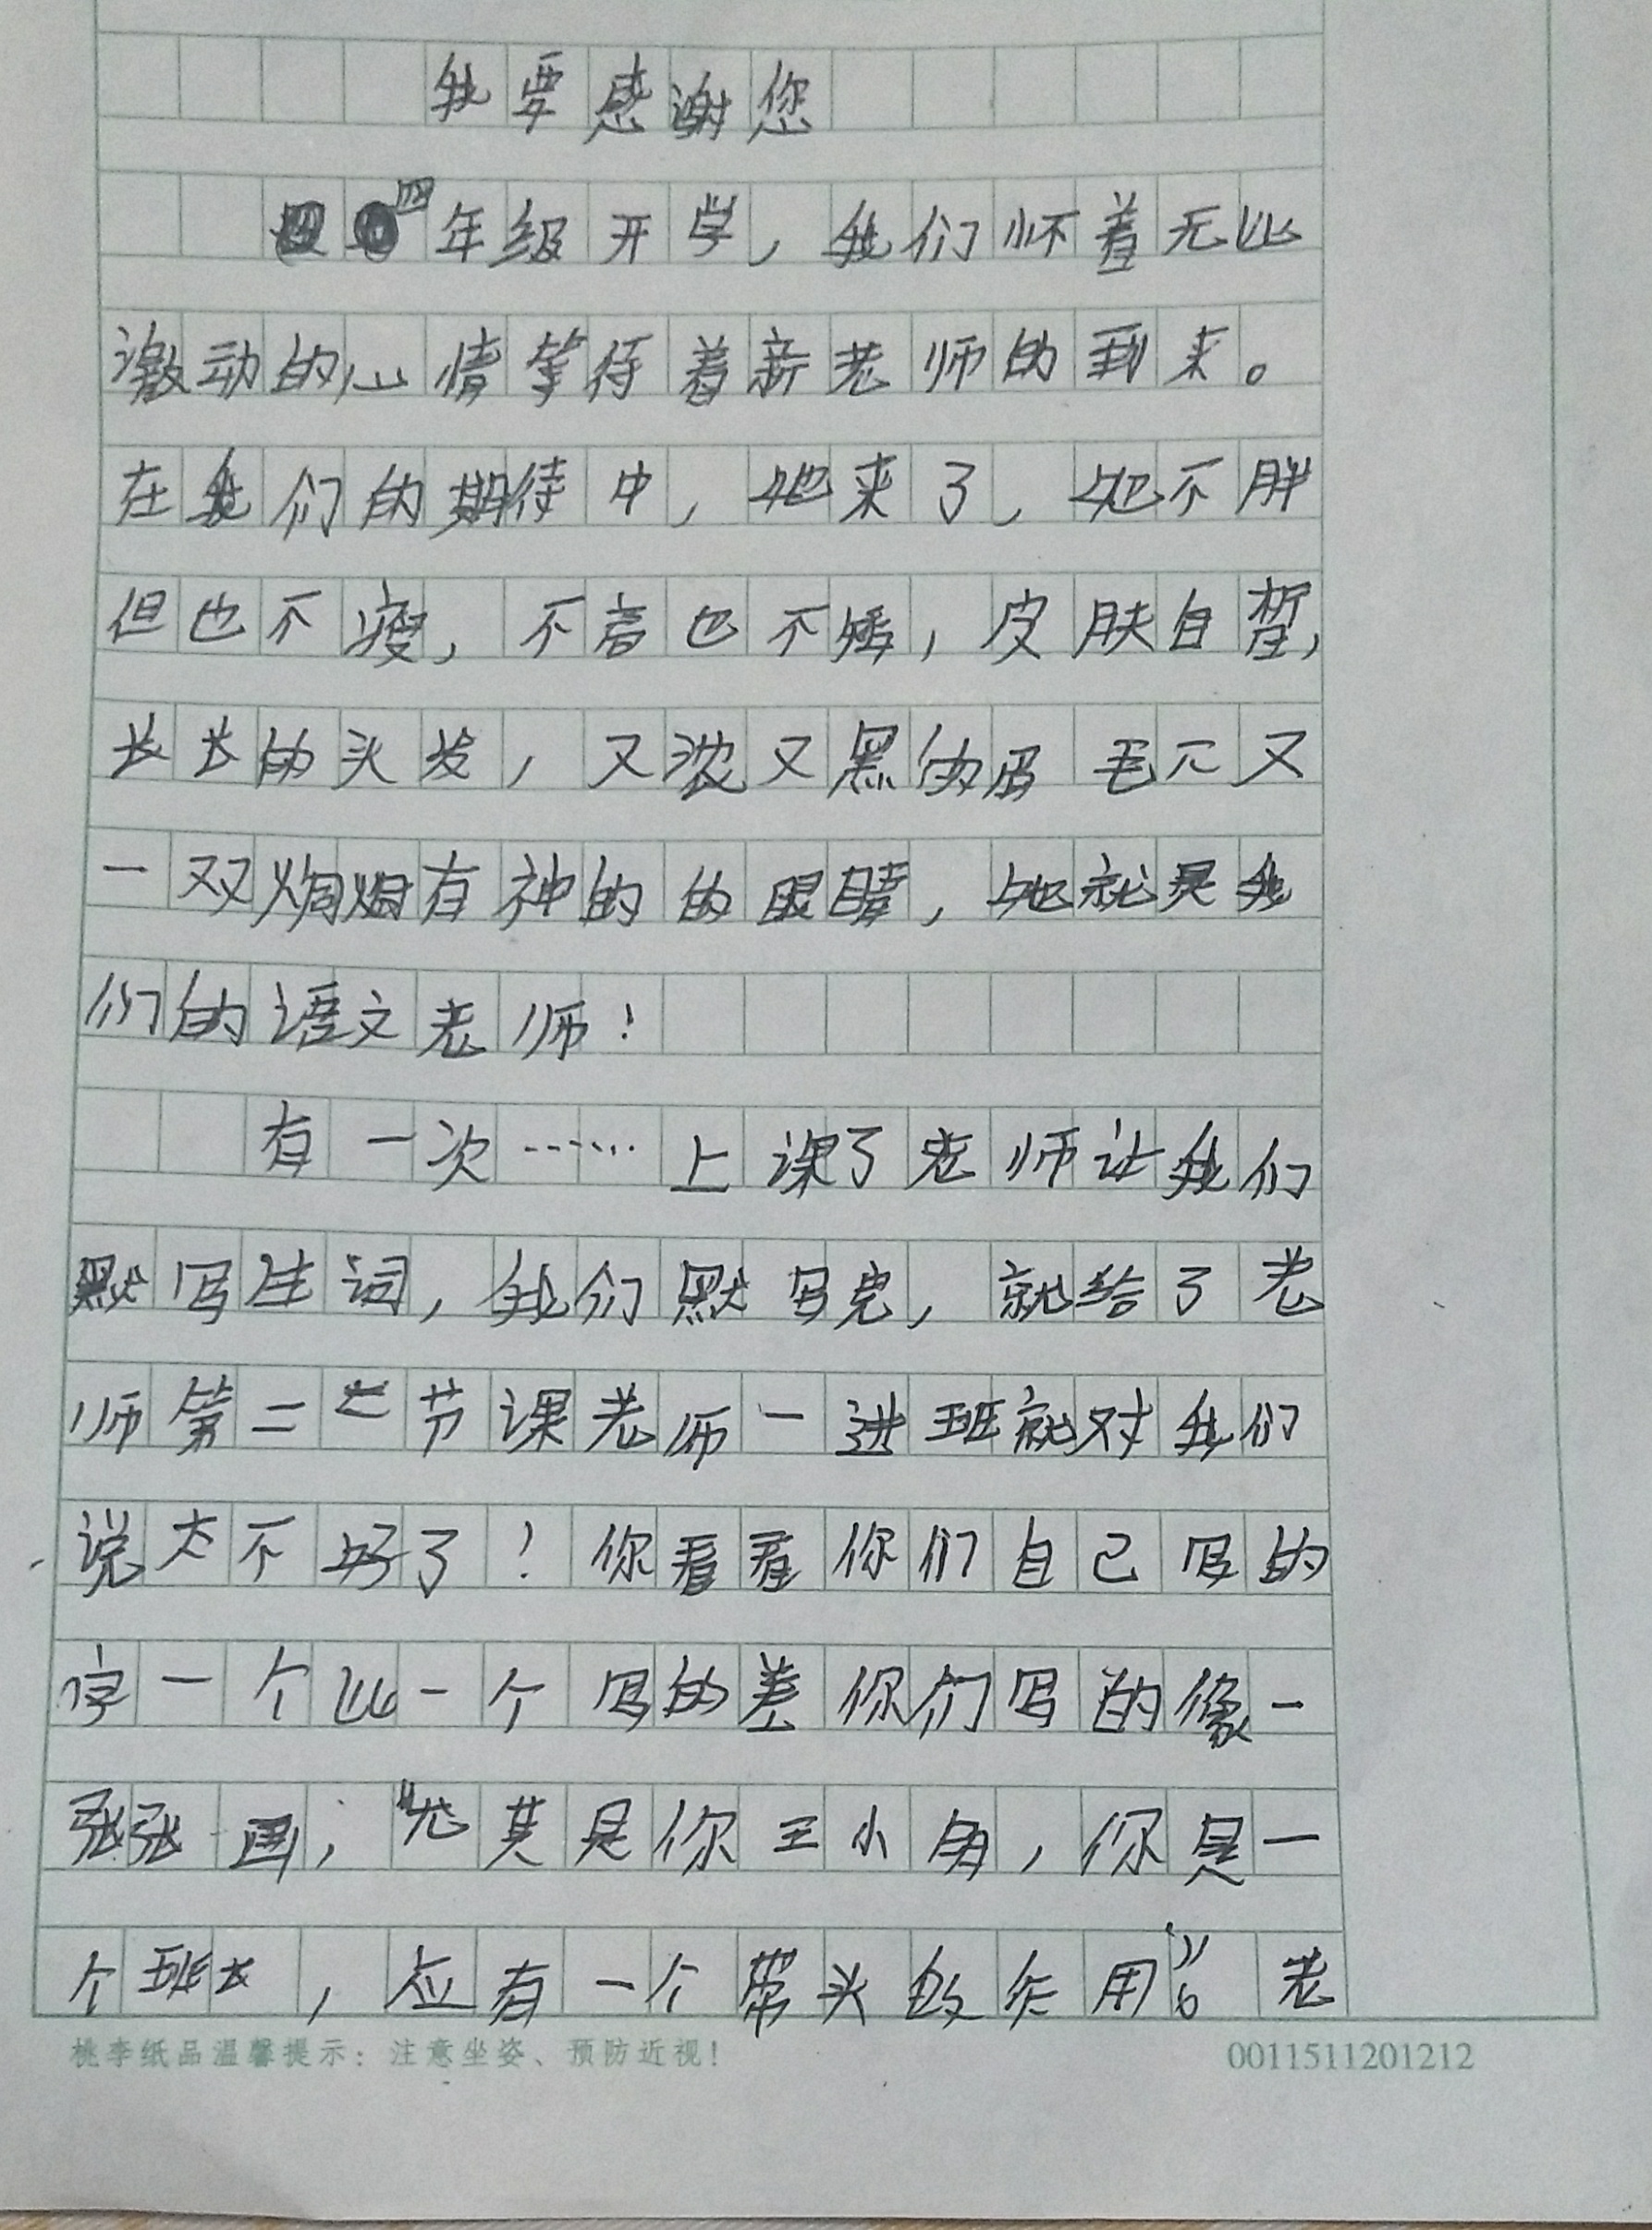 我要感谢您
四年级开学，我们怀着无比
激动的心情等待着新老师的到来。
在我们的期待中，她来了，她不胖
但也不瘦，不高也不矮，皮肤白皙，
长长的头发，又浓又黑的眉毛下又
一双炯炯有神的的眼睛，她就是我
们的语文老师！
有一次……上课了老师让我们
默写生词，我们默写完，就给了老
师第二节课老师一进班就对我们
说太不好了！你看看你们自己写的
字一个比一个写的差你们写的像一
张张画，“尤其是你王小明，你是一
个班长，应有一个带头的作用”。老
桃李纸品温馨提示：注意坐姿、预防近视！
0011511201212